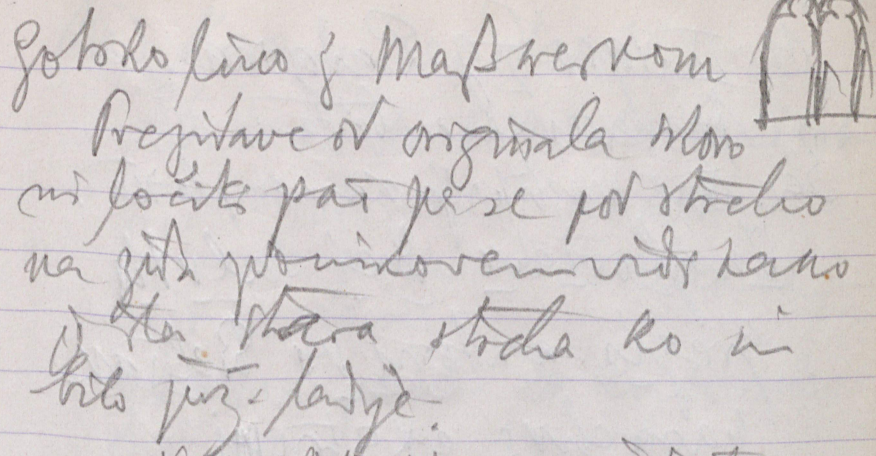 Gotsko lino z Maßwerkom
Prezidave od originala skoro
ni ločiti pač pa se pod streho
na zidu zvonikovem vidi kako
je šla stara streha ko ni
bilo juž. ladje.